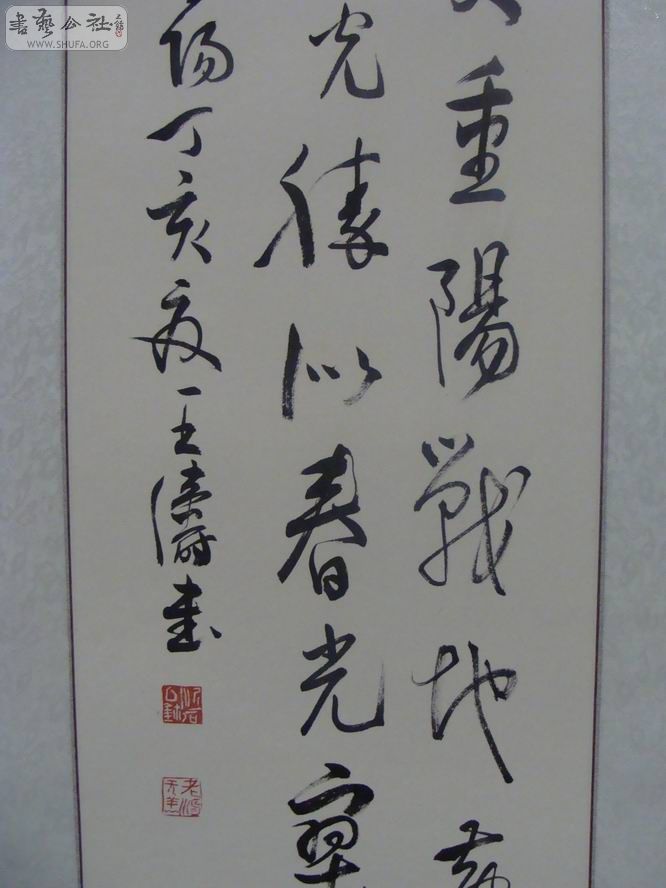 書藝公社
WWW.SHUFA.ORG
重陽戰地
光勝似春光寥
陽丁亥夏王濤書